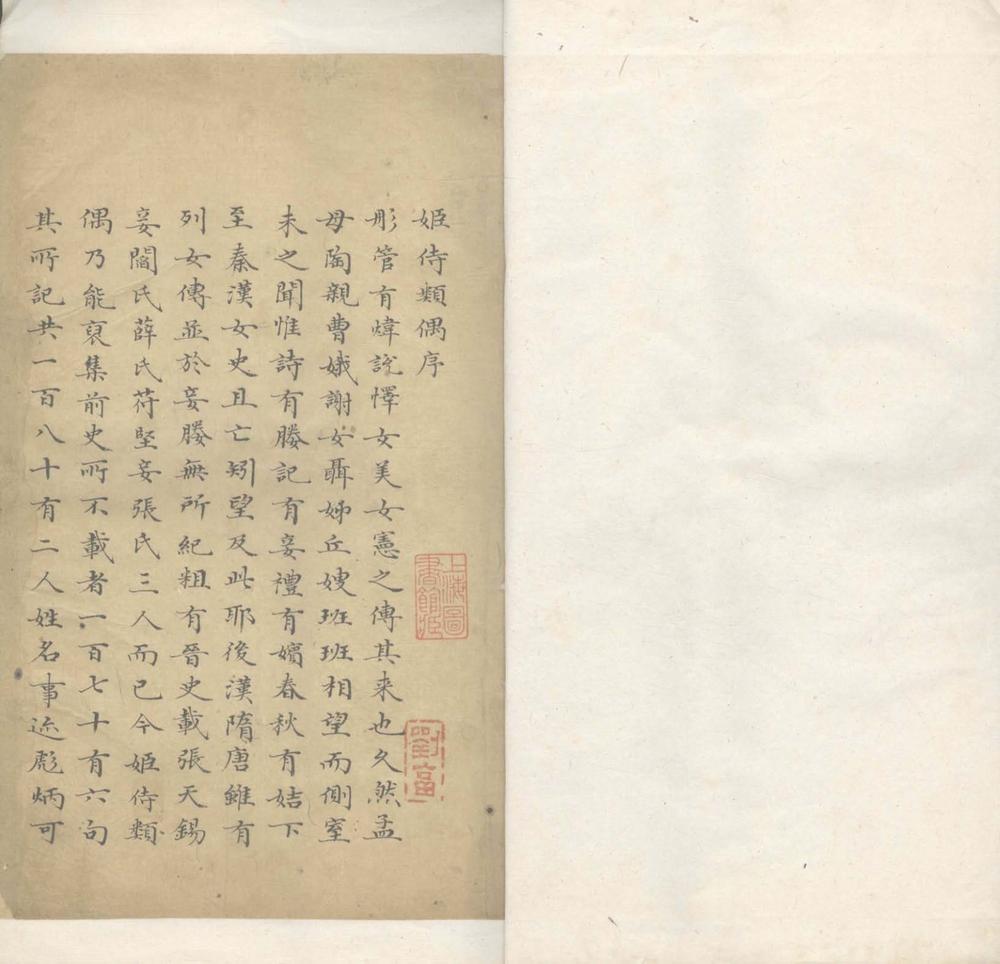 姬侍類偶序
彤管有煒說懌女美女憲之傳其来也久然孟
母陶親曹娥謝女聶姊丘嫂班班相望而側室
未之聞惟詩有媵記有妾禮有嬪春秋有姞下
至秦漢女史且亡矧望及此耶後漢隋唐雖有
列女傳並於妾媵無所紀粗有晉史載張天錫
妾閻氏薛氏苻堅妾張氏三人而已今姬侍類
偶乃能裒集前史所不載者一百七十有六句
其所記共一百八十有二人姓名事迹彪炳可
上海圖
書館藏